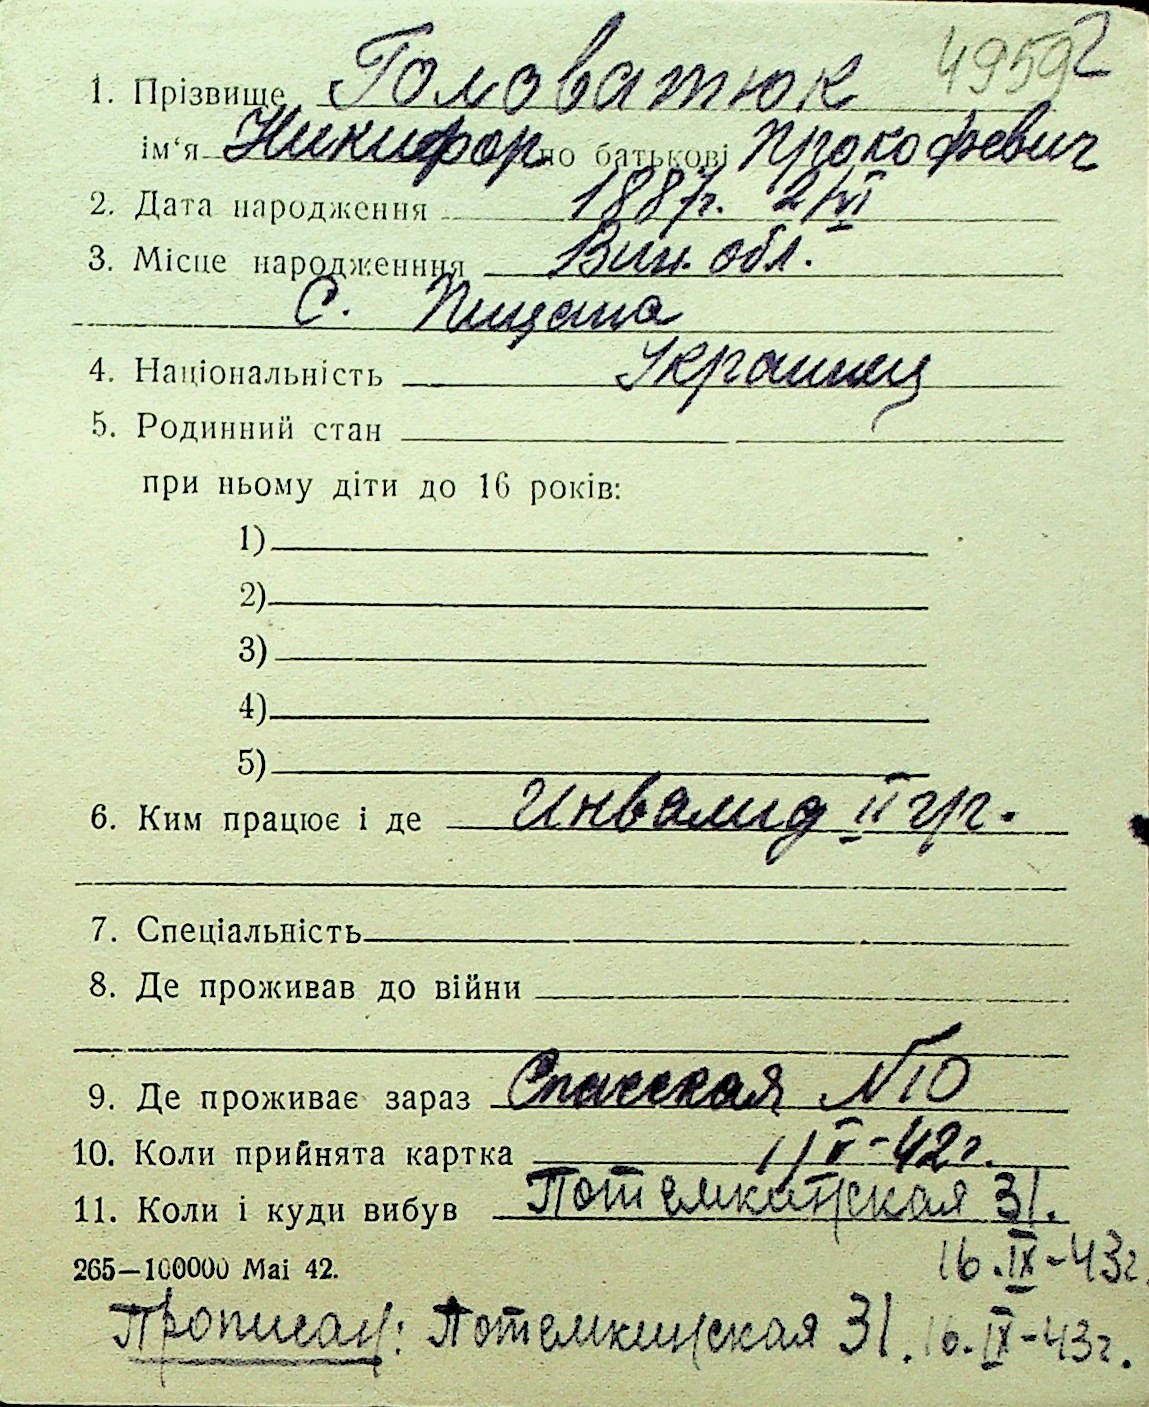 49592
1. Прізвище Головатюк
ім‘я Никифор по батькові Прокофьевич
2. Дата народження 1887г. 2/VI
3. Місце народженння Вин. обл.
С. Пищана
4. Національність Украинец
5. Родинний стан
при ньому діти до 16 років:
1)
2)
3)
4)
5)
6. Ким працює і де Инвалид II гр.
7. Спеціальність
8. Де проживав до війни
9. Де проживає зараз Спасская №10
10. Коли прийнята картка -42г.
11. Коли і куди вибув Потемкинская 31.
16.IX-43г.
265—100000 Mai 42.
Прописан: Потемкинская 31. 16.IX-43г.